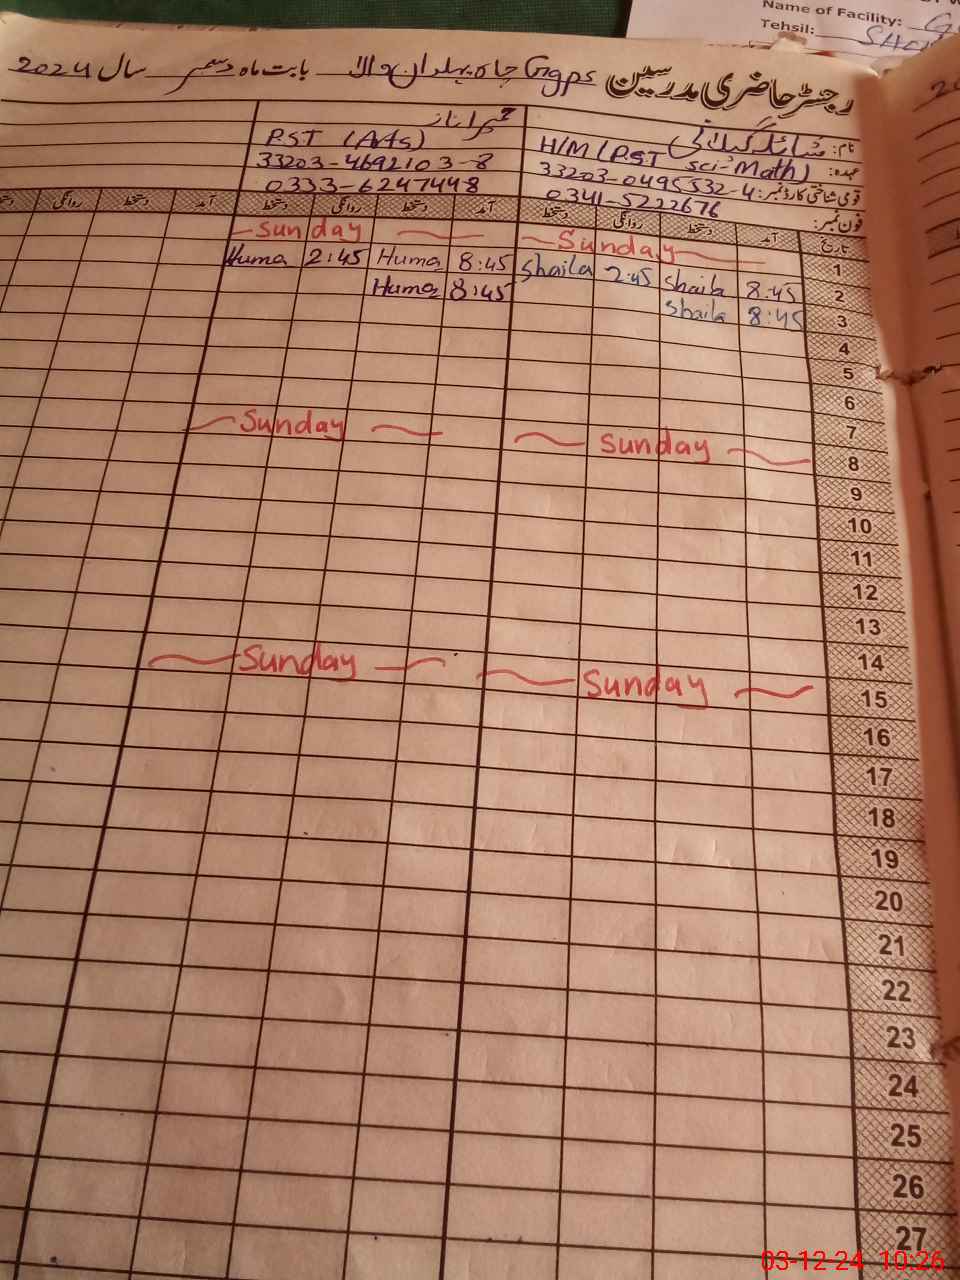 Name of Facility: G
Tehsil:
رجسٹر حاضری مدرسین Ggps چاہ بہلدان والا بابت ماہ دسمبر سال 2024
نام: شائلہ گیلانی
حمیرا ناز
عہدہ: H/M (P.S.T sci-Math)
P.S.T (Arts)
قومی شناختی کارڈ نمبر: 33203-0495532-4
33203-4692103-8
فون نمبر: 0341-5222676
0333-6247448
تاریخ آمد دستخط روانگی دستخط آمد دستخط روانگی دستخط آمد دستخط روانگی دستخط
1 Sunday Sunday
2 8:45 Shaila 2:45 Shaila 8:45 Huma 2:45 Huma
3 8:45 Shaila 8:45 Huma
4
5
6
7
8 Sunday Sunday
9
10
11
12
13
14
15 Sunday Sunday
16
17
18
19
20
21
22
23
24
25
26
27
03-12-24 10:26